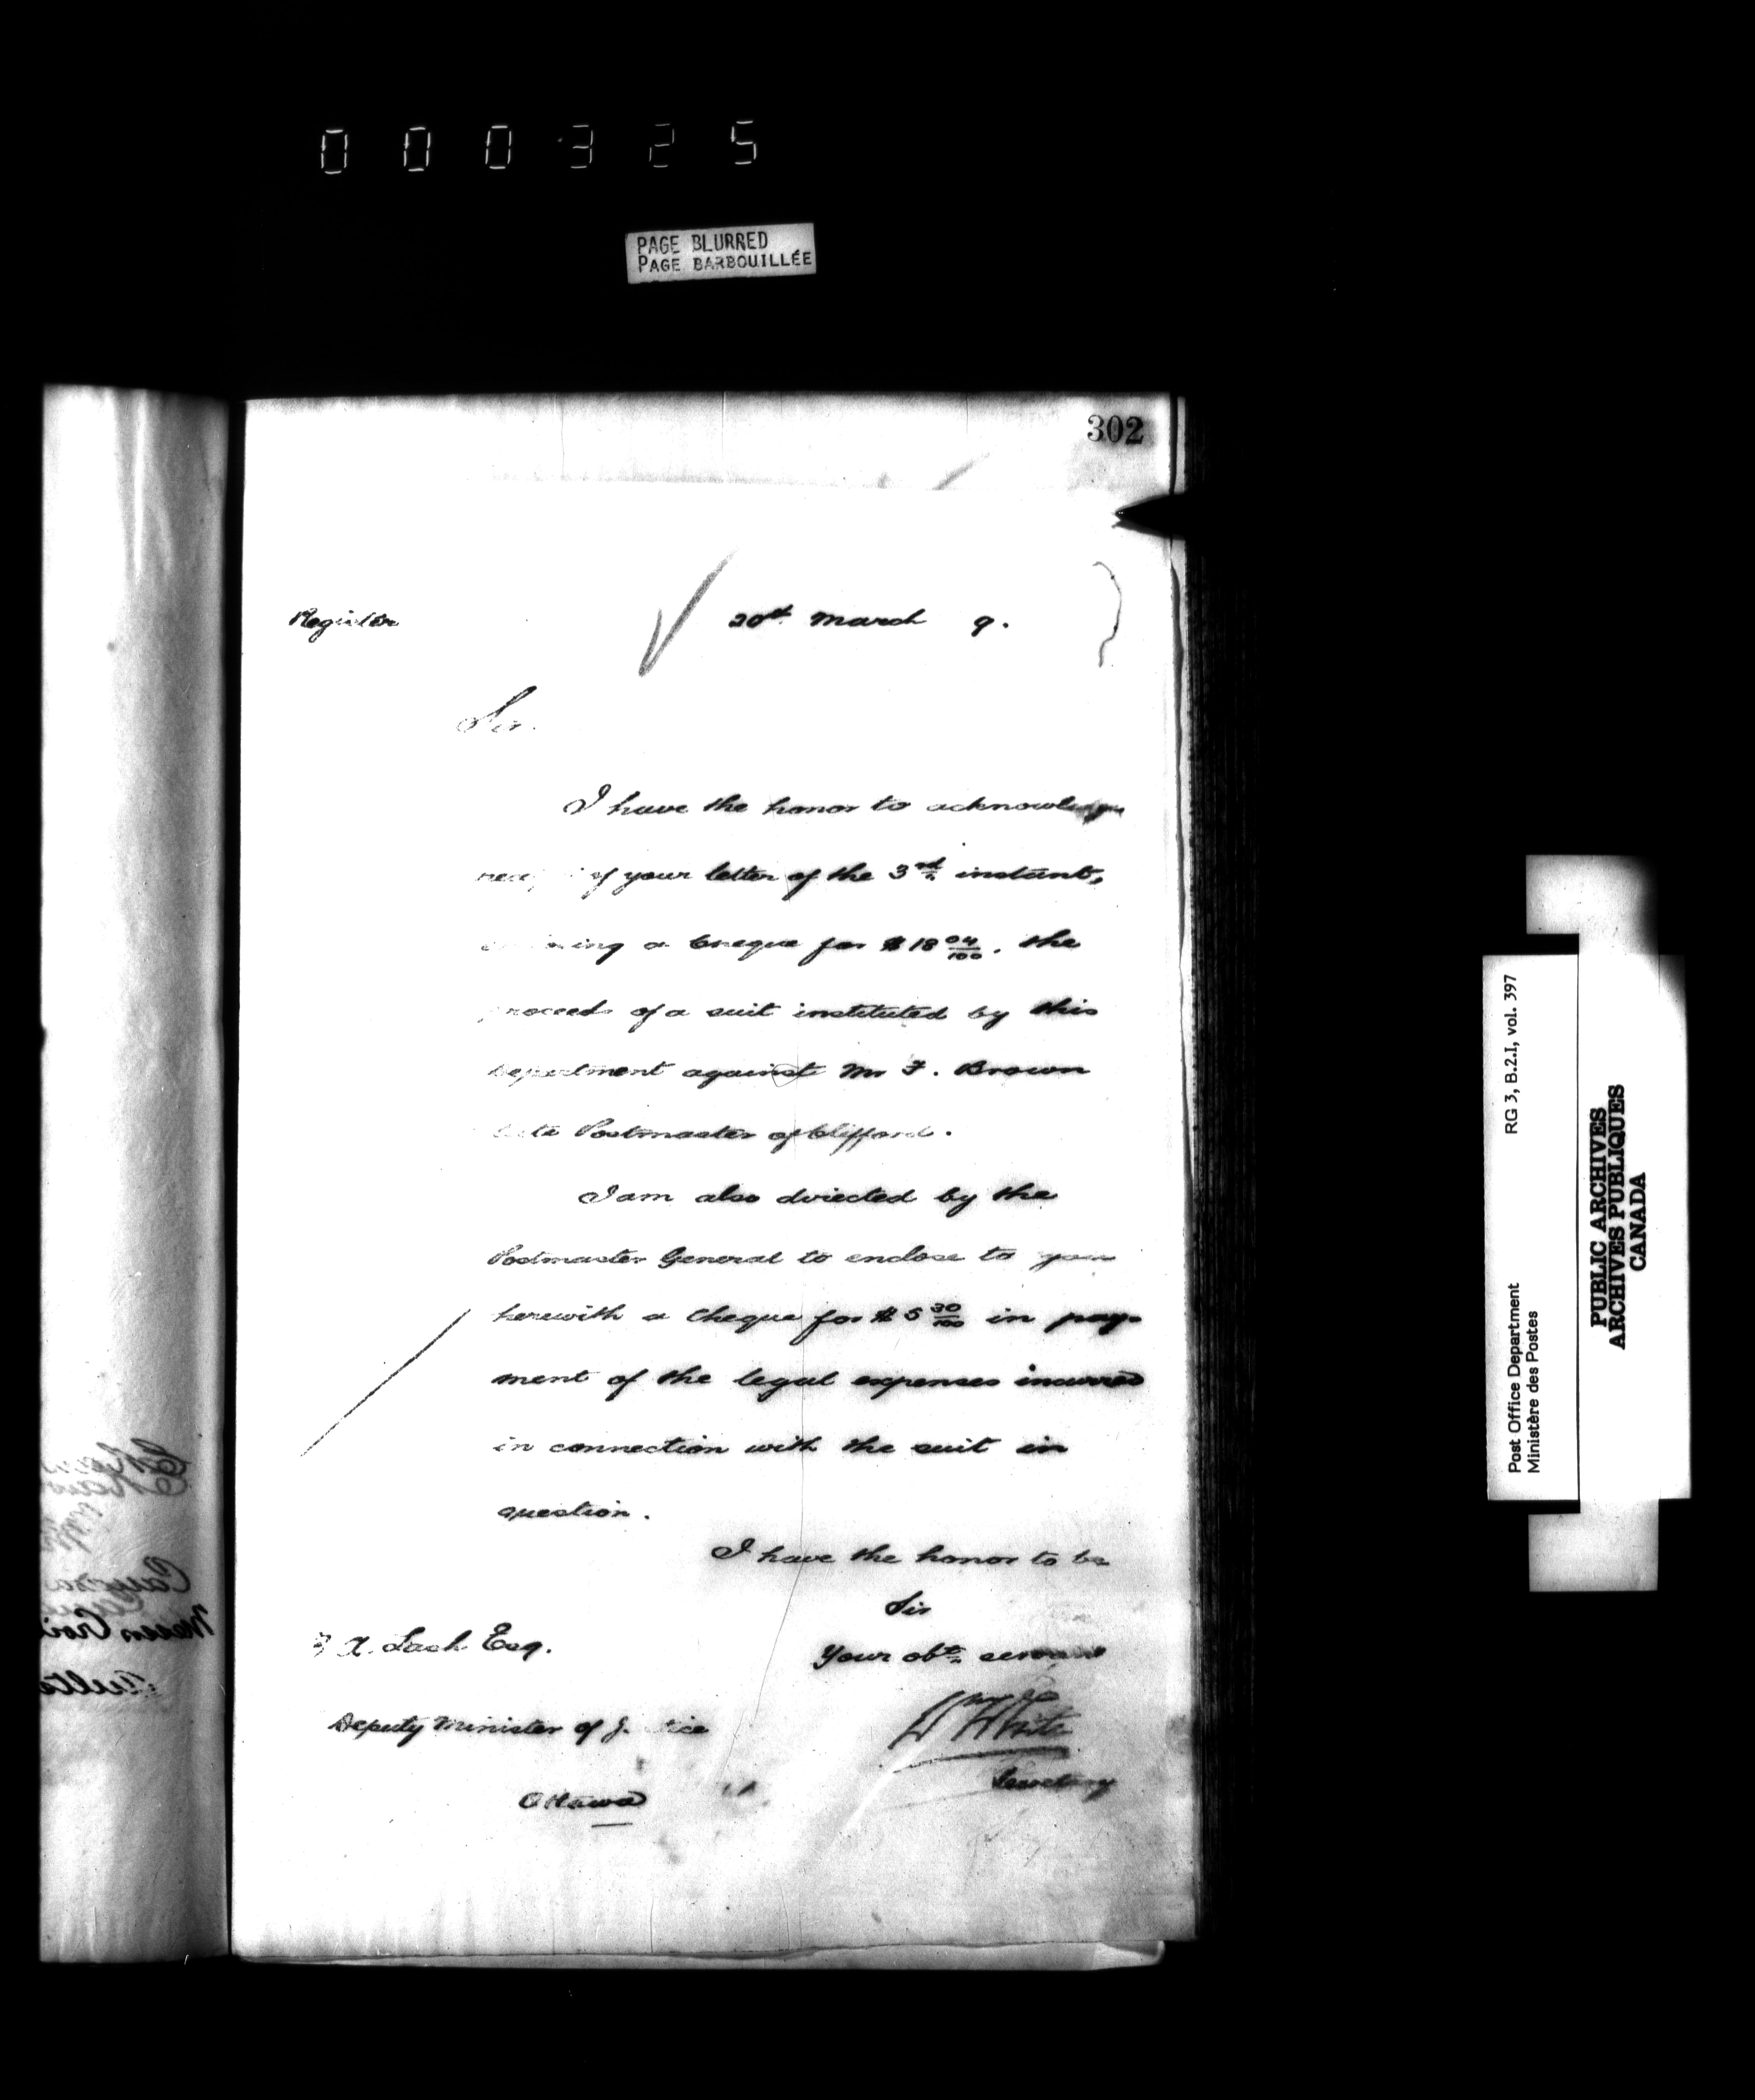 000325
PAGE BLURRED
PAGE BARBOUILLÉE
302
Register
20th March 9.
Sir.
I have the honor to acknowledge
of your letter of the 3rd instant,
a Cheque for $18 04/100. the
proceeds of a suit instituted by this
Department against Mr F. Brown
late Postmaster of Clifford.
I am also directed by the
Postmaster General to enclose to you
herewith a Cheque for $5 30/100 in pay-
ment of the legal expenses incurred
in connection with the suit in
question.
I have the honor to be
Sir
Your obt. servant
Z A. Lash Esq.
W White
Deputy Minister of Justice
Secretary
Ottawa
Post Office Department RG 3, B.2.I, vol. 397
Ministère des Postes
PUBLIC ARCHIVES
ARCHIVES PUBLIQUES
CANADA